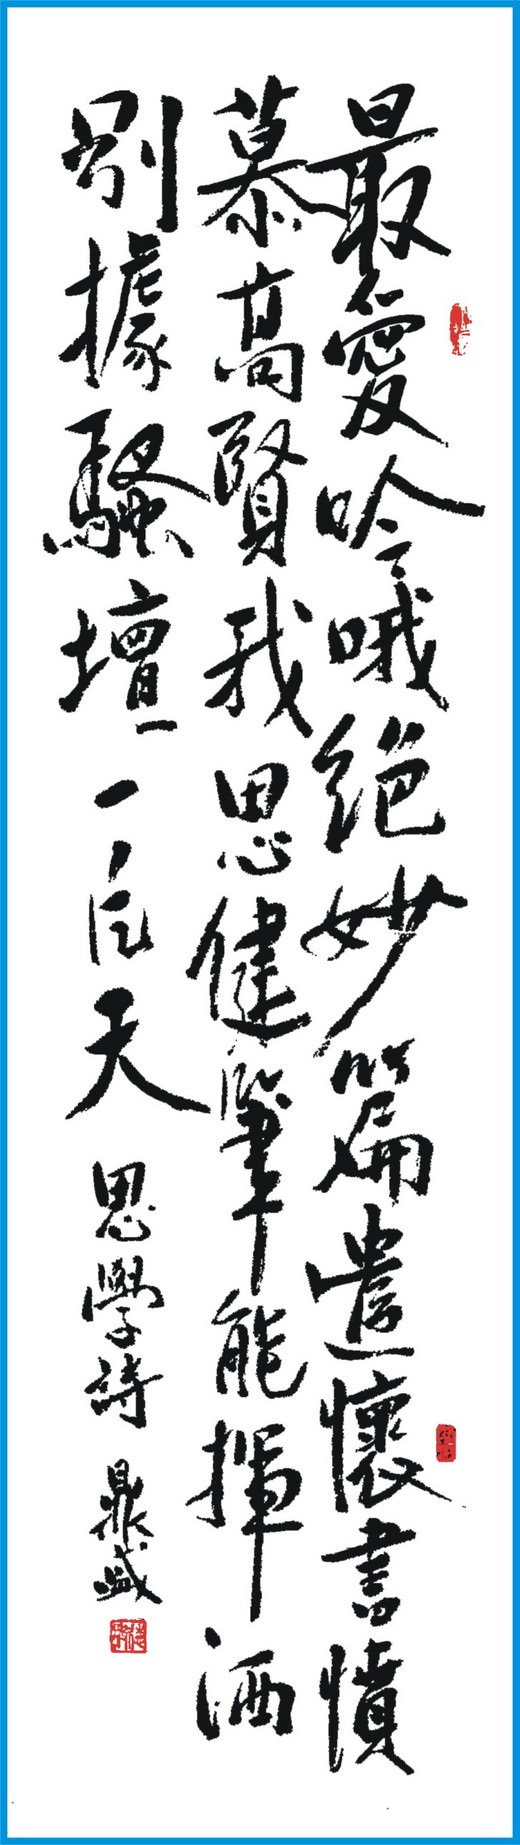 最愛吟哦絕妙篇遣懷書憤
慕高賢我思健筆能揮洒
別據騷壇一臣天
思學詩 鼎盛